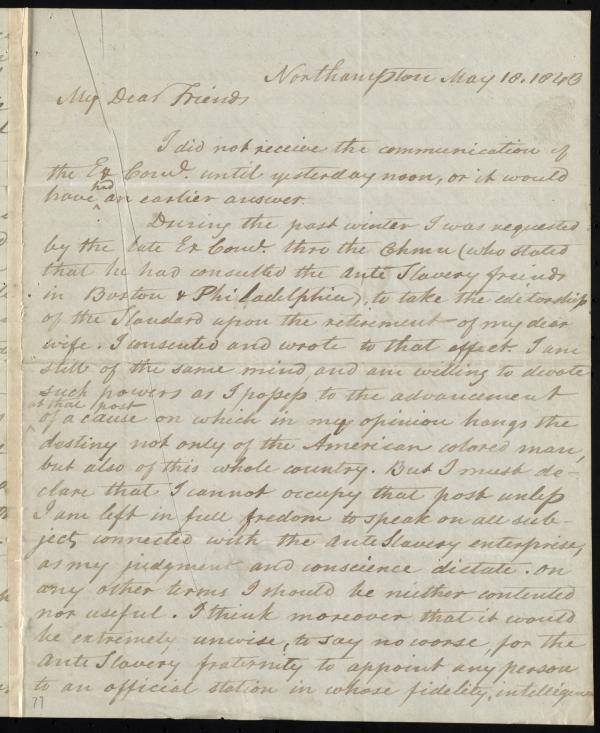 Northampton May 18. 1843
My Dear Friends
I did not receive the communication of
the Ex Comᵉ. until yesterday noon, or it would
have had an earlier answer.
During the past winter I was requested
by the late Ex Comᵉ. thro the Chmn (who stated
that he had consulted the Anti Slavery friends
in Boston & Philadelphia), to take the editorship
of the Standard upon the retirement of my dear
wife. I consented and wrote to that effect. I am
still of the same mind, and am willing to devote
such powers as I possess to the advancement
at that post
of a cause on which in my opinion hangs the
destiny not only of the American colored man,
but also of this whole country. But I must de-
clare that I cannot occupy that post unless
I am left in full freedom to speak on all sub-
jects connected with the Anti Slavery enterprise,
as my judgment and conscience dictate. On
any other terms I should be neither contented
nor useful. I think moreover that it would
be extremely unwise, to say no worse, for the
Anti Slavery fraternity to appoint any person
to an official station in whose fidelity, intelligence
77